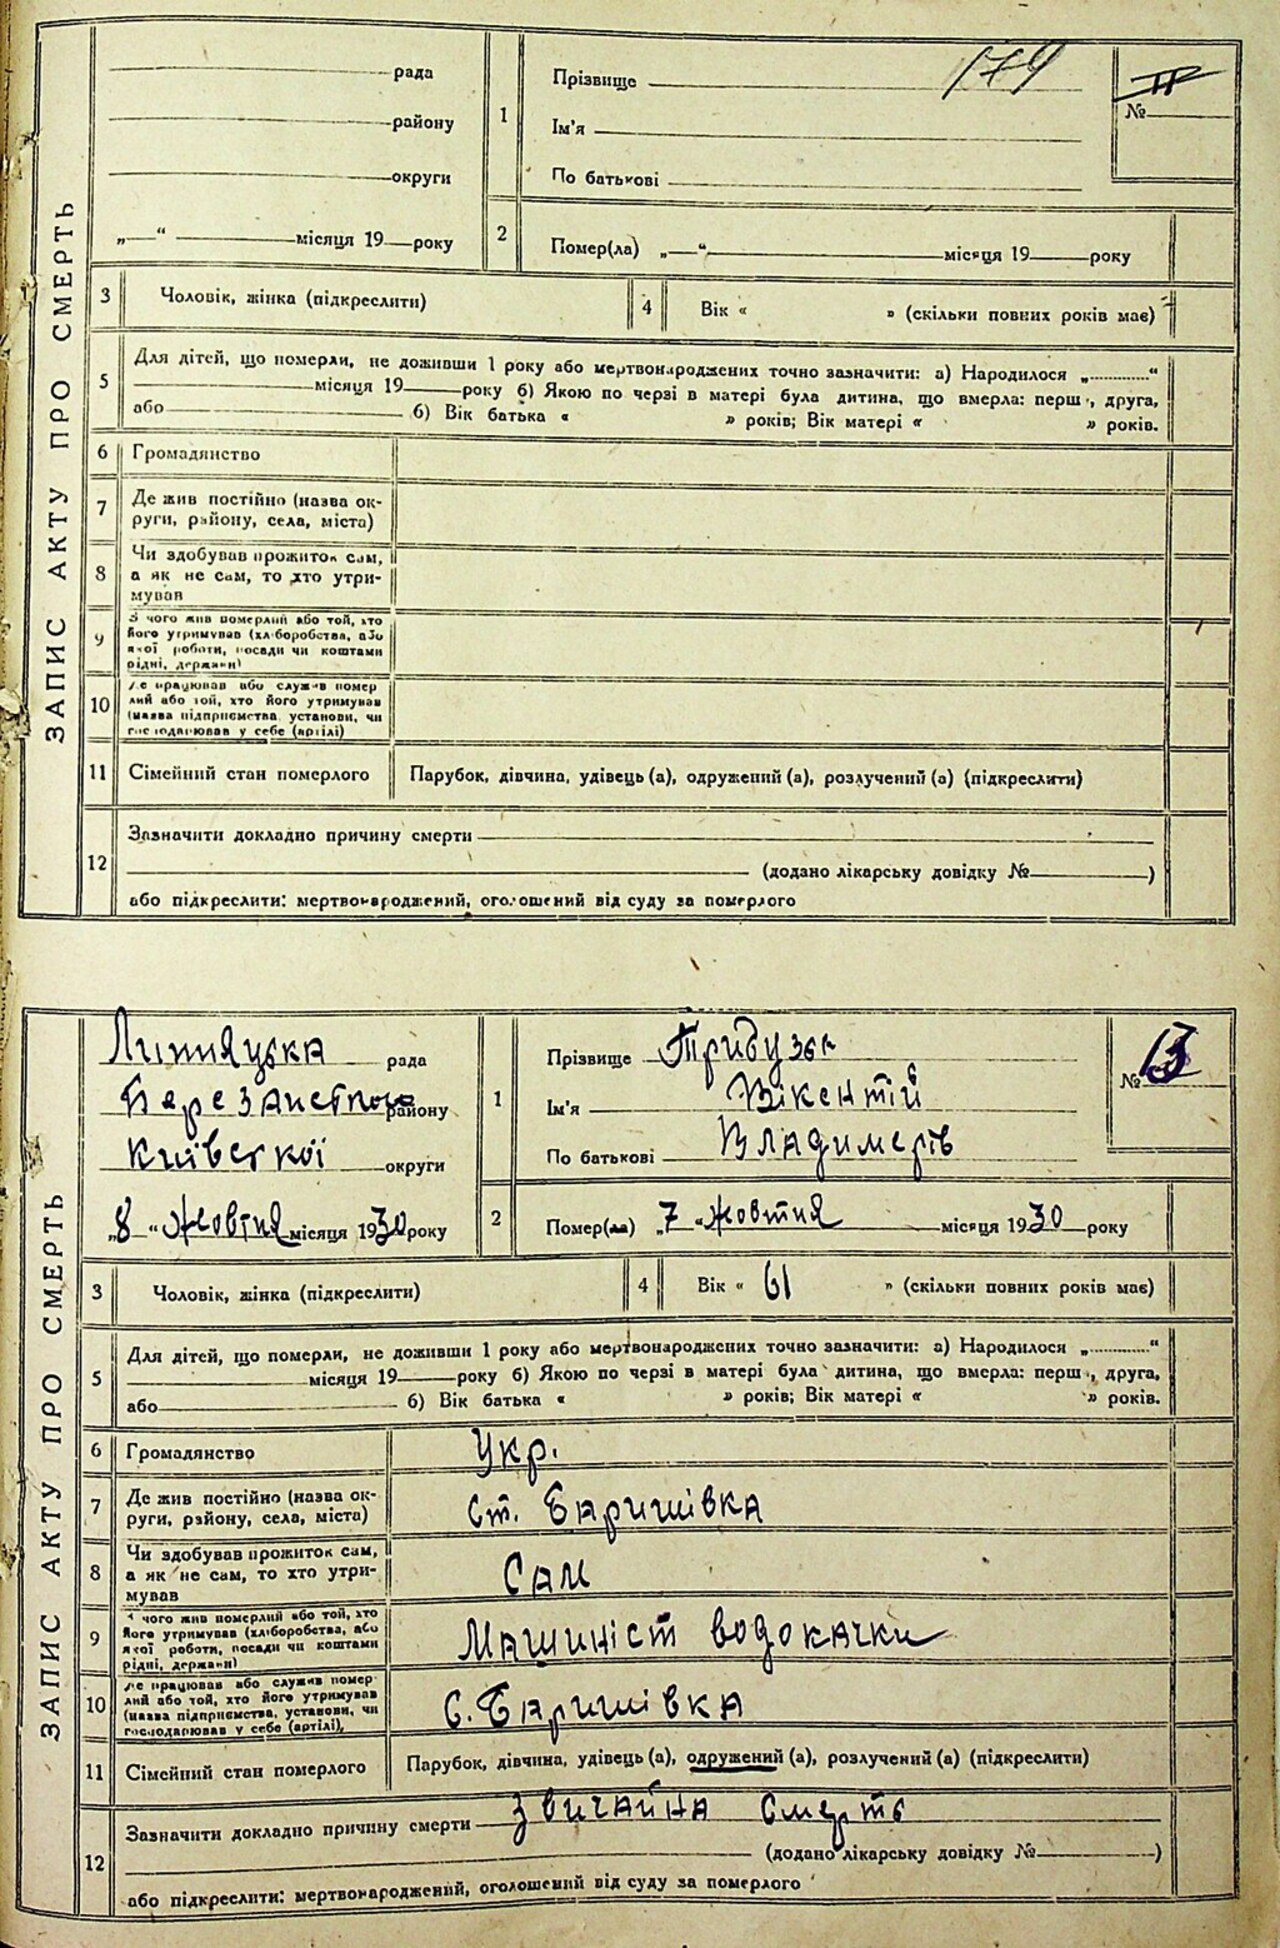 ЗАПИС АКТУ ПРО СМЕРТЬ
рада
району
округи
„—“ місяця 19 року
1
Прізвище
174
Ім'я
По батькові
№
2
Помер(ла) „—“ місяця 19 року
3 Чоловік, жінка (підкреслити)
4 Вік « » (скільки повних років має)
5
Для дітей, що померли, не доживши 1 року або мертвонароджених точно зазначити: а) Народилося „............“
місяця 19 року б) Якою по черзі в матері була дитина, що вмерла: перш, друга,
або б) Вік батька « » років; Вік матері « » років.
6 Громадянство
7
Де жив постійно (назва ок-
руги, району, села, міста)
8
Чи здобував прожиток сам,
а як не сам, то хто утри-
мував
9
З чого жив померлий або той, хто
його утримував (хліборобства, або
якої роботи, посади чи коштами
рідні, держави)
10
Де працював або служив помер
лий або той, хто його утримував
(назва підприємства, установи, чи
господарював у себе (артілі)
11 Сімейний стан померлого Парубок, дівчина, удівець (а), одружений (а), розлучений (а) (підкреслити)
12
Зазначити докладно причину смерти
(додано лікарську довідку № )
або підкреслити: мертвонароджений, оголошений від суду за померлого
ЗАПИС АКТУ ПРО СМЕРТЬ
рада
району
Київської округи
„8“ Жовтня місяця 1930 року
1
Прізвище
Ім'я Вікентій
По батькові Владимерів
№ 13
2
Помер(ла) „7“ Жовтня місяця 1930 року
3 Чоловік, жінка (підкреслити)
4 Вік « 61 » (скільки повних років має)
5
Для дітей, що померли, не доживши 1 року або мертвонароджених точно зазначити: а) Народилося „............“
місяця 19 року б) Якою по черзі в матері була дитина, що вмерла: перш, друга,
або б) Вік батька « » років; Вік матері « » років.
6 Громадянство Укр.
7
Де жив постійно (назва ок-
руги, району, села, міста)
Ст. Баришівка
8
Чи здобував прожиток сам,
а як не сам, то хто утри-
мував
Сам
9
З чого жив померлий або той, хто
його утримував (хліборобства, або
якої роботи, посади чи коштами
рідні, держави)
Машиніст водокачки
10
Де працював або служив помер
лий або той, хто його утримував
(назва підприємства, установи, чи
господарював у себе (артілі),
С. Баришівка
11 Сімейний стан померлого Парубок, дівчина, удівець (а), одружений (а), розлучений (а) (підкреслити)
12
Зазначити докладно причину смерти Звичайна Смерть
(додано лікарську довідку № )
або підкреслити: мертвонароджений, оголошений від суду за померлого